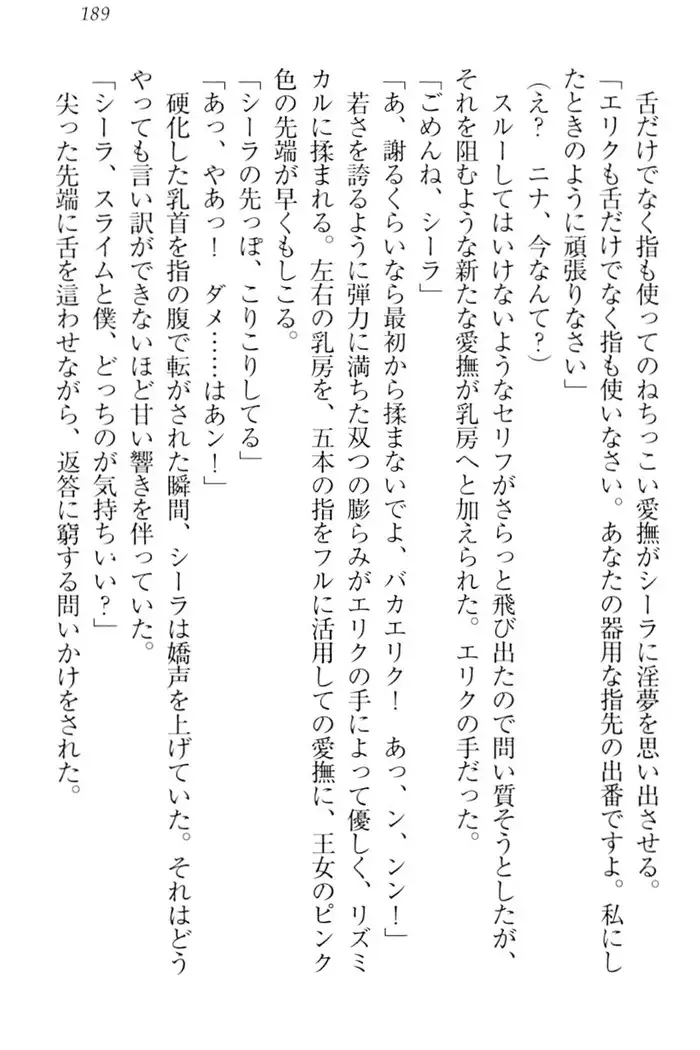 189
舌だけでなく指も使ってのねちっこい愛撫がシーラに淫夢を思い出させる。
「エリクも舌だけでなく指も使いなさい。あなたの器用な指先の出番ですよ。私にし
たときのように頑張りなさい」
(え？　ニナ、今なんて？)
スルーしてはいけないようなセリフがさらっと飛び出たので問い質そうとしたが、
それを阻むような新たな愛撫が乳房へと加えられた。エリクの手だった。
「ごめんね、シーラ」
「あ、謝るくらいなら最初から揉まないでよ、バカエリク！　あっ、ン、ンン！」
若さを誇るように弾力に満ちた双つの膨らみがエリクの手によって優しく、リズミ
カルに揉まれる。左右の乳房を、五本の指をフルに活用しての愛撫に、王女のピンク
色の先端が早くもしこる。
「シーラの先っぽ、こりこりしてる」
「あっ、やあっ！　ダメ……はあン！」
硬化した乳首を指の腹で転がされた瞬間、シーラは嬌声を上げていた。それはどう
やっても言い訳ができないほど甘い響きを伴っていた。
「シーラ、スライムと僕、どっちのが気持ちいい？」
尖った先端に舌を這わせながら、返答に窮する問いかけをされた。